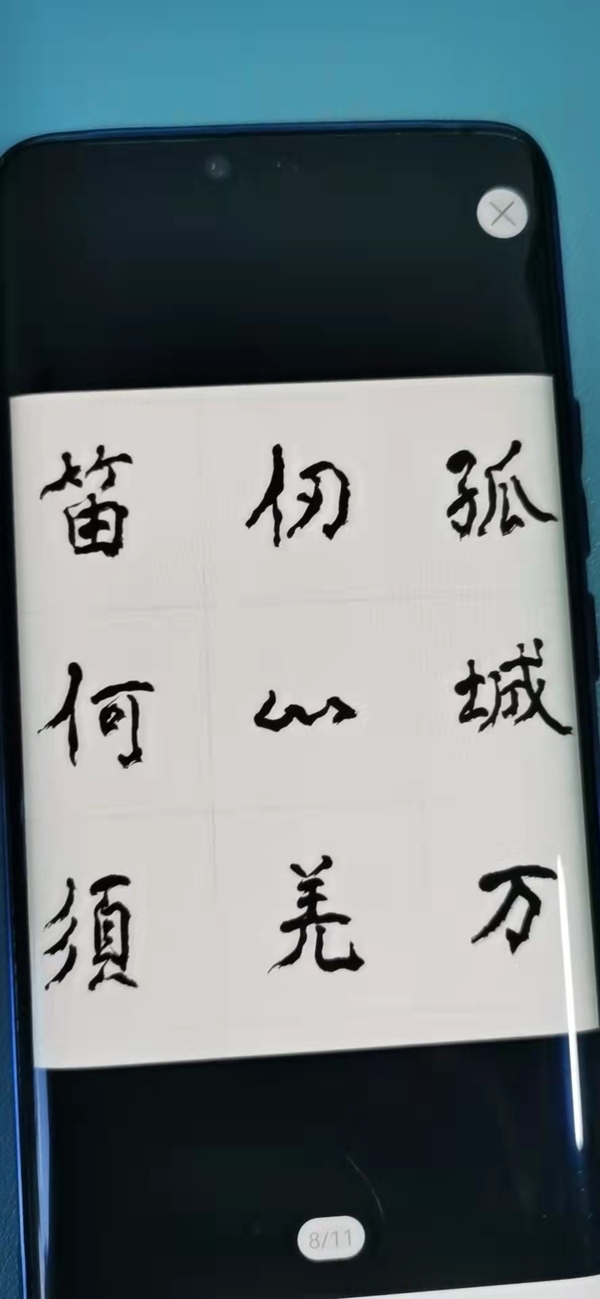 孤城万
仞山羌
笛何须
8/11